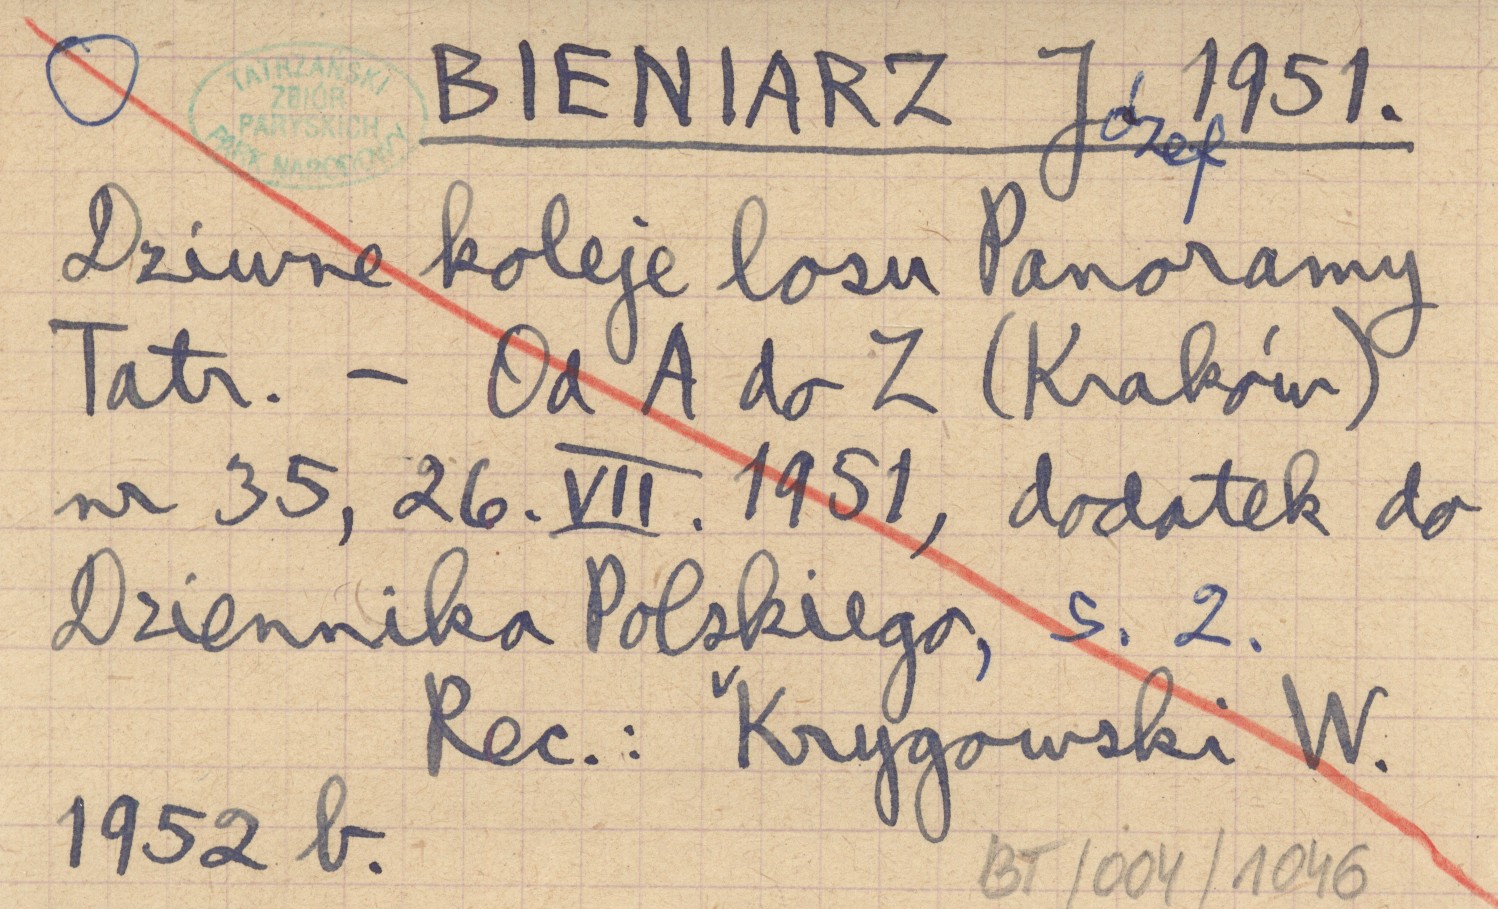 TATRZAŃSKI
ZBIÓR
PARYSKICH
PARK NARODOWY
BIENIARZ Józef 1951.
Dziwne koleje losu Panoramy
Tatr. – Od A do Z (Kraków)
nr 35, 26. VII. 1951, dodatek do
Dziennika Polskiego, s. 2.
Rec.: Krygowski W.
1952 b.
BT/004/1046